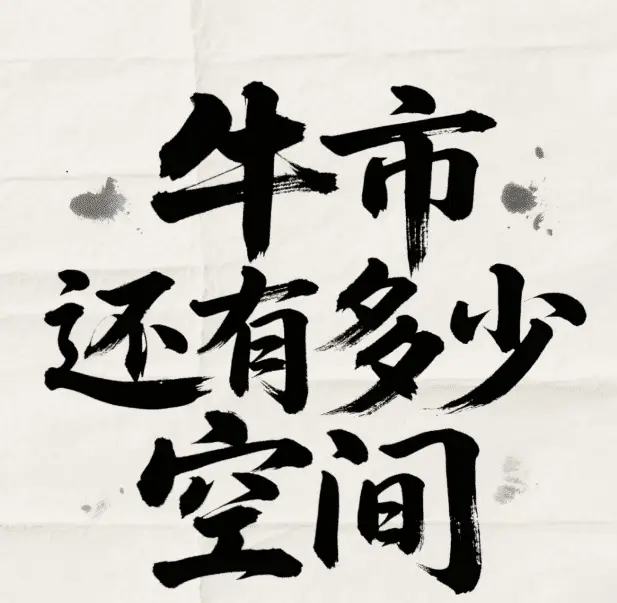 牛市
还有多少
空间